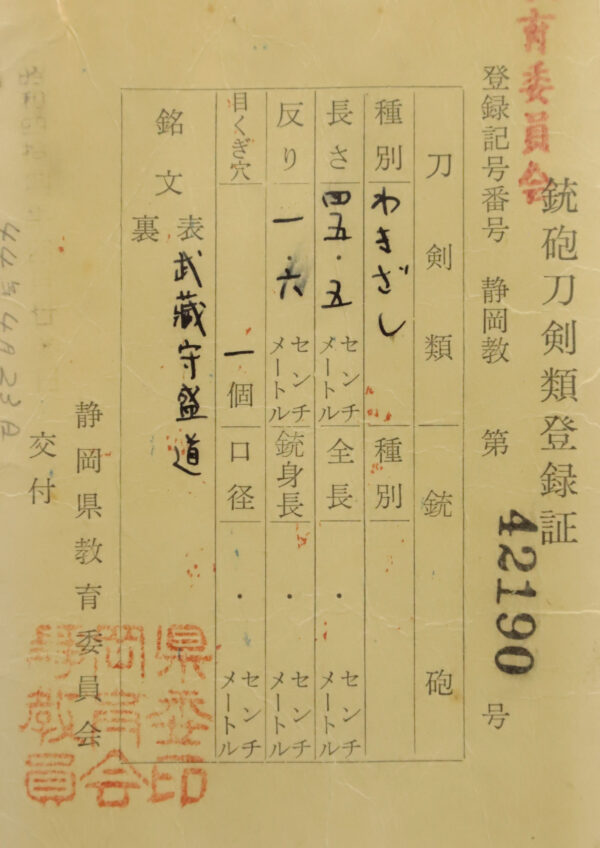 育委員会
銃砲刀剣類登録証
登録記号番号 静岡教 第 42190 号
刀剣類 銃砲
種別 わきざし 種別
長さ 四五・五 センチメートル 全長 ・ センチメートル
反り 一・六 センチメートル 銃身長 ・ センチメートル
目くぎ穴 一個 口径 ・ センチメートル
銘文 表 武蔵守盛道
裏
静岡県教育委員会
交付
県委印
岡育会
静教員